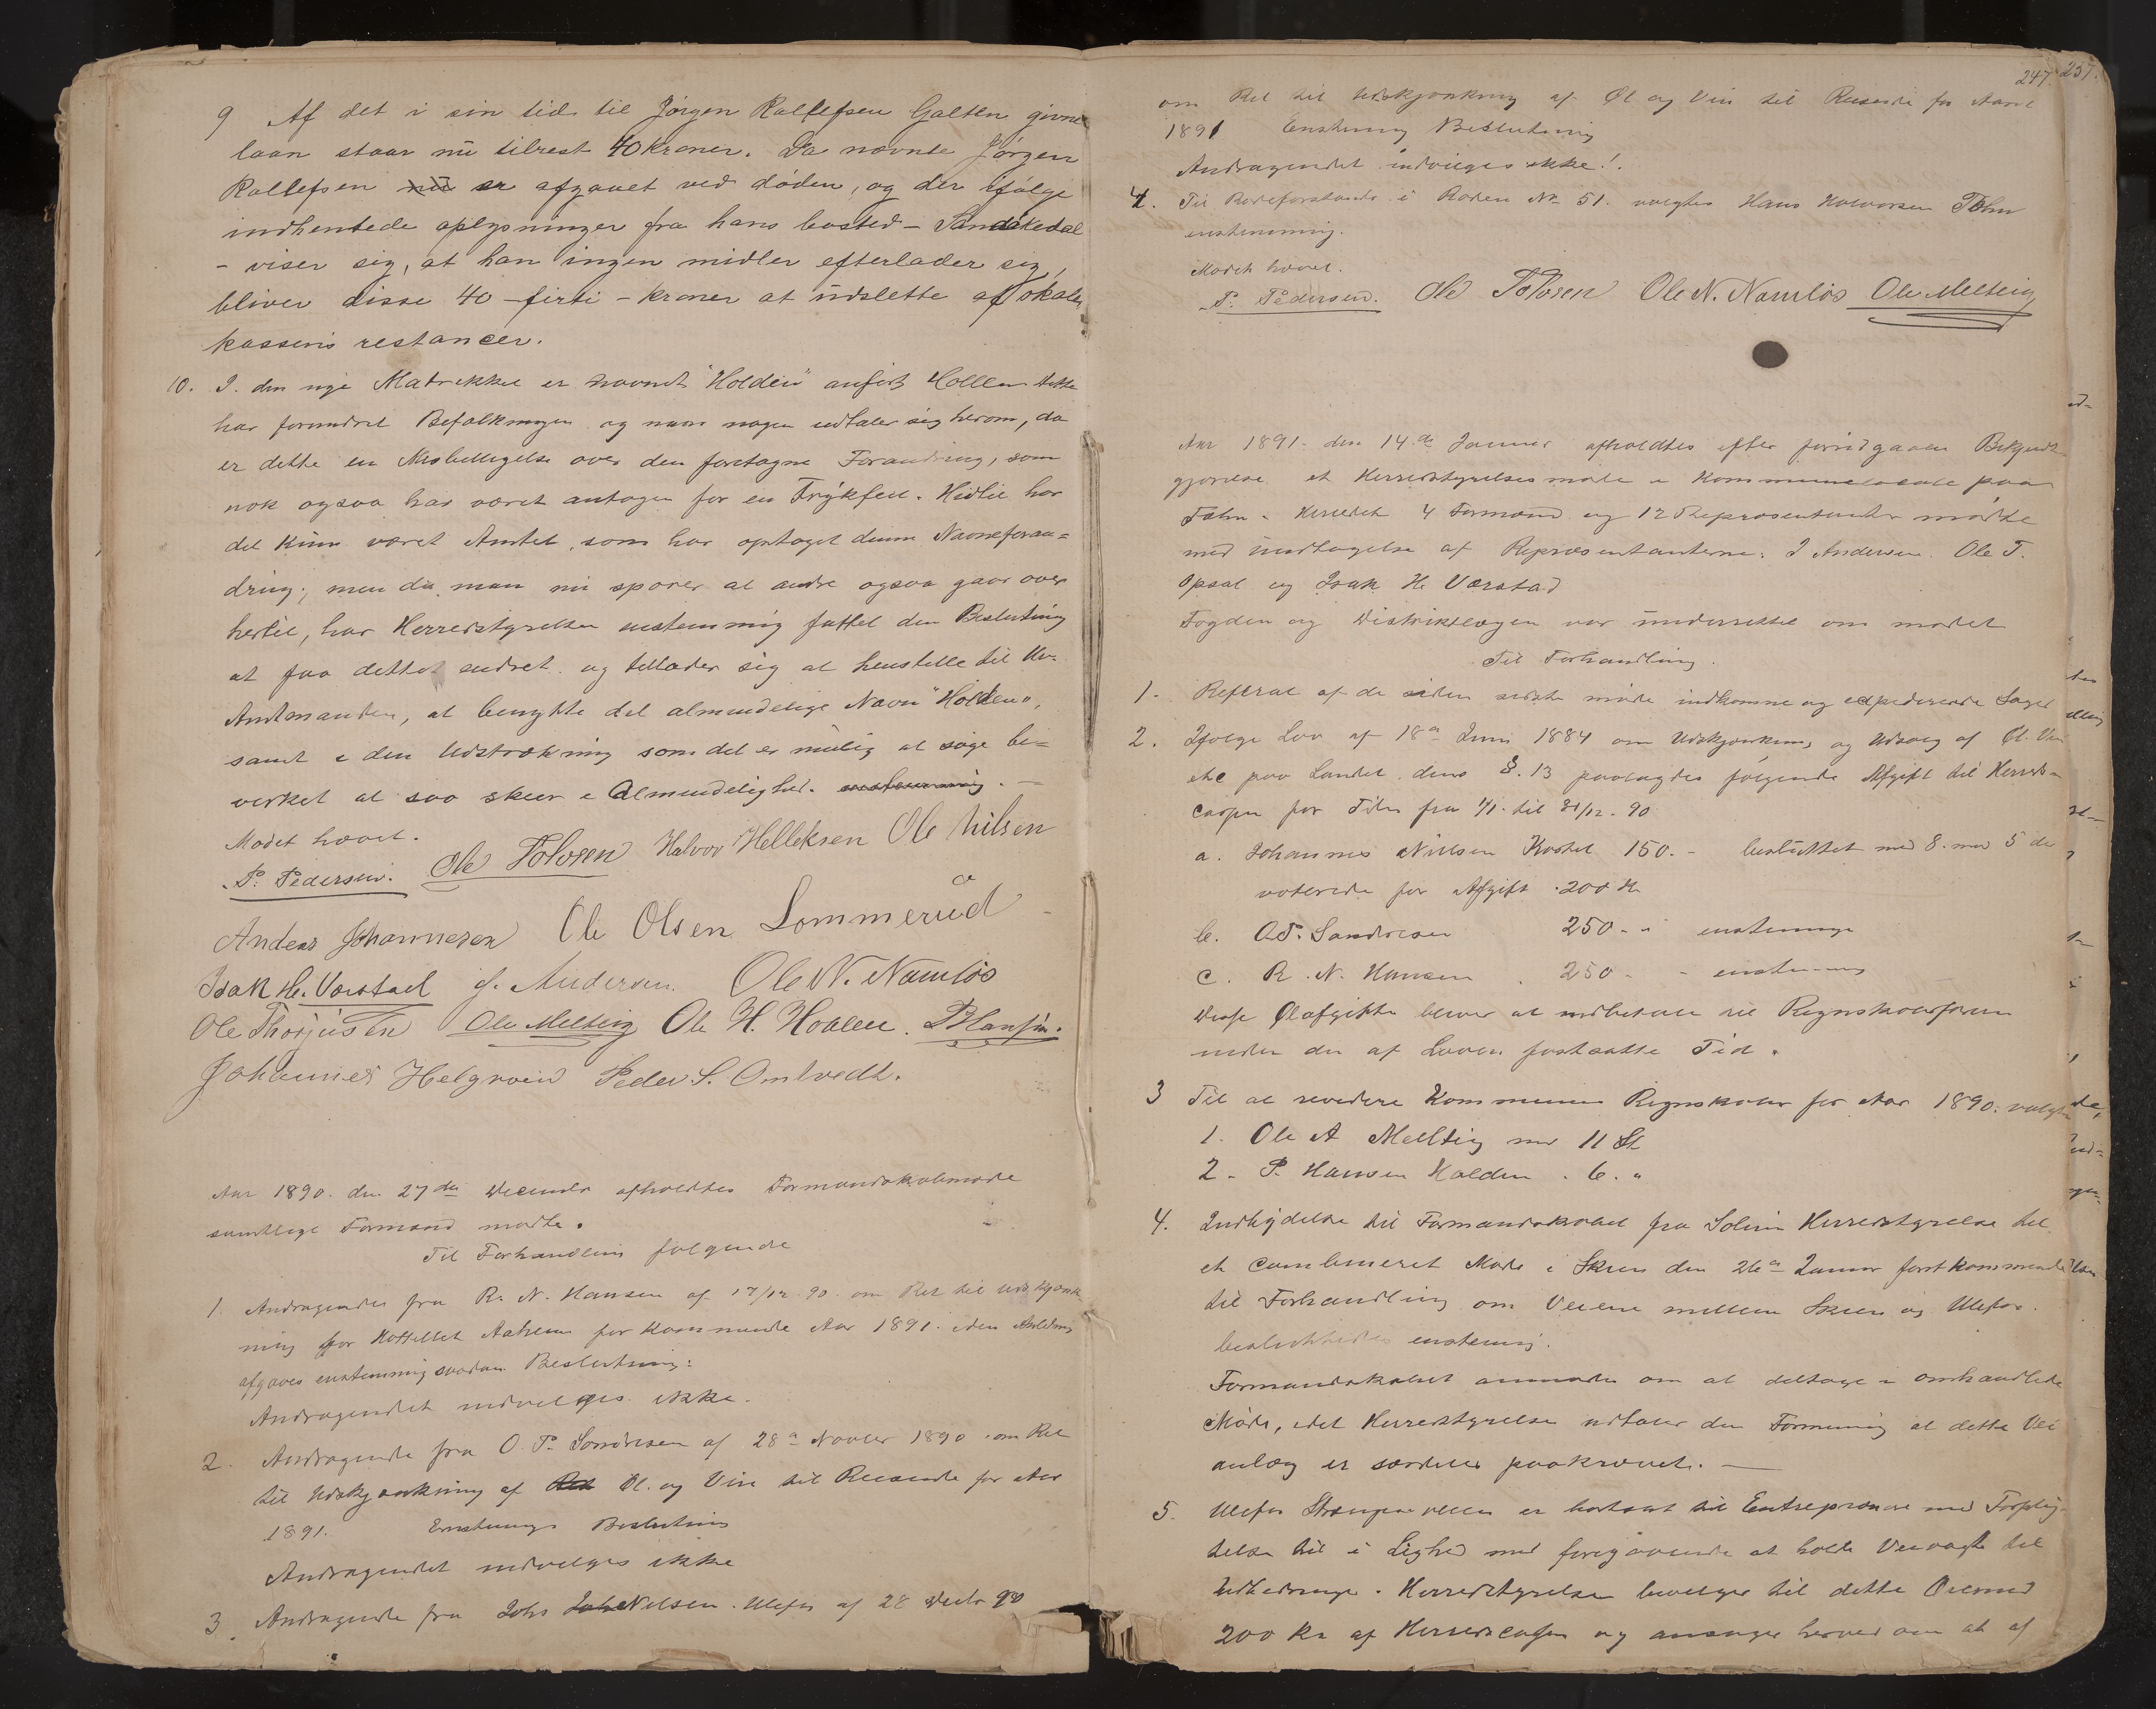 9 Af det i sin tid til Jörgen Rollefsen Galten givne
laan staar nu tilrest 40 kroner. Da nævnte Jörgen
Rollefsen nu er afgaaet ved døden, og der ifølge
indhentede oplysninger fra hans bosted - Sandøkedal
- viser sig, at han ingen midler efterlader sig,
bliver disse 40 - firti - kroner at udslette af skole
kassens restancer.
10. I den nye Matrikkel er Navnet "Holden" anført Hollen dette
har forundret Befolkningen og naar nogen udtaler sig herom, da
er dette en Misbilligelse over den foretagne Forandring, som
nok ogsaa har været antagen for en Trykfeil. Hidtil har
det kun været Amtet, som har optaget denne Navneforan=
dring; men da man nu sporer at andre ogsaa gaar over
hertil, har Herredstyrelsen enstemmig fattet den Beslutning
at faa dette endret og tillader sig at henstille til Hr.
Amtmanden, at benytte det almindelige Navn "Holden",
samt i den Udstrækning som det er mulig at søge be=
virket at saa skeer i Almindelighed. enstemmig. -
Mødet hævet.
P. Pedersen. Ole Tolvsen Halvor Helleksen Ole Nilsen
Anders Johannesen Ole Olsen Lommerud
Isak H. Værstad J. Andersen. Ole N. Namløs
Ole Thorjusen Ole Melteig Ole H. Hollen. P Hansen.
Johannes Helgroen Peder S. Omtvedt.
Aar 1890. den 27de December afholdtes Formandskabsmøde
samtlige Formænd mødte.
Til Forhandling følgende
1. Andragende fra R. N. Hansen af 17/12 90. om Ret til Udskjænk=
ning for Hotellet Aaheim for kommende Aar 1891. iden Anledning
afgaves enstemmig saadan Beslutning:
Andragendet indvilges ikke.
2. Andragende fra O. P. Sondresen af 28de Novbr 1890 om Ret
til Udskjænkning af Øl. og Vin til Reisende for Aar
1891. Enstemmig Beslutning
Andragendet indvilges ikke
3. Andragende fra Johs Nilsen. Ulefos af 28 Decbr 90
247 257.
om Ret til Udskjænkning af Øl og Vin til Reisende for Aaret
1891 Enstemmig Beslutning
Andragendet indvilges ikke!.
4. Til Rodeforstander i Roden No 51. valgtes Hans Halvorsen Tohn
enstemmig.
Mødet hævet.
P. Pedersen. Ole Tolvsen Ole N. Namløs Ole Melteig
Aar 1891. den 14de Januar afholdtes efter forudgaaen Bekjendt
gjørelse et Herredstyrelsesmøde i Kommunelocale paa
Tohn. Herredets 4 Formænd og 12 Repræsentanter mødte
med undtagelse af Repræsentanterne: J Andersen. Ole T.
Opsal og Isak H. Værstad
Fogden og Distriktslægen var underrettet om mødet
Til Forhandling.
1. Referat af de siden sidste møde indkomne og expederede Sager
2. Ifølge Lov af 18de Juni 1884 om Udskjænkning og Udsalg af Øl. Vin
etc paa Landet dens §. 13 paalagdes følgende Afgift til Herreds=
cassen for Tiden fra 1/1. til 31/12. 90
a. Johannes Nilsen Kastet 150. - besluttet med 8. mod 5 der
voterede for Afgift 200 Kr
b. O.P. Sondresen 250 - - enstemmig
c. R. N. Hansen 250 - - enstemmig
Disse Ølafgifter bliver at indbetale til Regnskabsføreren
inden den af Loven fastsatte Tid.
3 Til at revidere Kommunens Regnskaber for Aar 1890. valgtes
1. Ole A Melteig med 11 St
2. P. Hansen Holden . 6. "
4. Indbydelse til Formandskabet fra Solum Herredstyrelse til
et combineret Møde i Skien den 26de Januar førstkommende
til Forhandling om Veiene mellem Skien og Ulefos.
besluttedes enstemmig.
Formandskabet anmodes om at deltage i omhandlede
Møde, idet Herredstyrelsen udtaler den Formening at dette Vei
anlæg er særdeles paakrævet. -
5. Ulefos Strengeveien er bortsat til Entreprenører med Forplig-
telse til i Lighed med foregaaende at holde Veivagt til
Udbedringe. Herredstyrelsen bevilger til dette Øiemed
200 Kr af Herredscassen og ansøger herved om at af